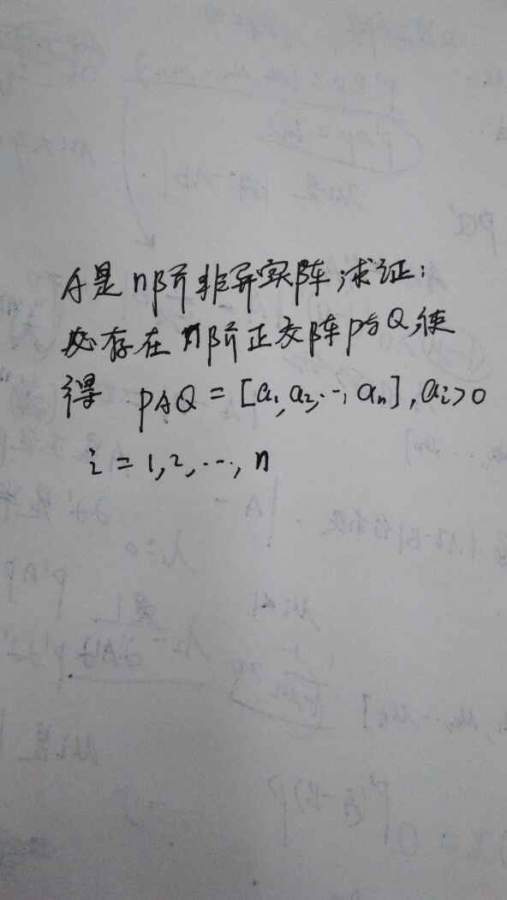 A是n阶非异实阵,求证:
必存在n阶正交阵P与Q,使
得 PAQ = [a₁,a₂,…,aₙ], aᵢ>0
i = 1,2,…,n